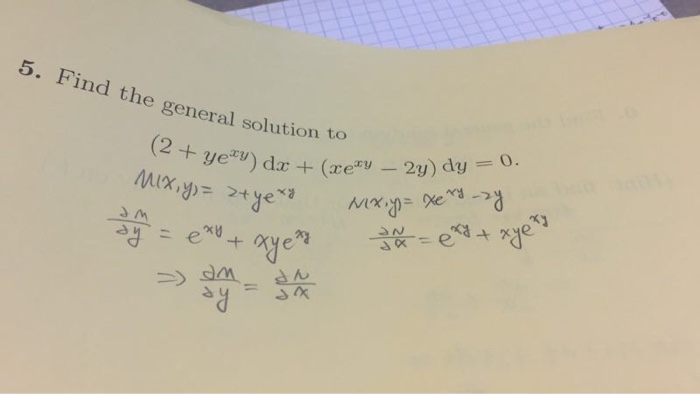 5. Find the general solution to
(2 + ye^{xy}) dx + (xe^{xy} − 2y) dy = 0.
M(x,y) = 2+ye^{xy} N(x,y) = xe^{xy} -2y
∂M/∂y = e^{xy} + xye^{xy} ∂N/∂x = e^{xy} + xye^{xy}
⇒ ∂M/∂y = ∂N/∂x